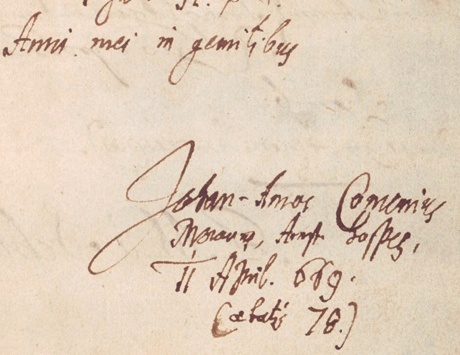 Anni mei in gemitibus
Johan-Amos Comenius
Moravus, Amst. hospes,
11 April. 669.
(ætatis 78.)